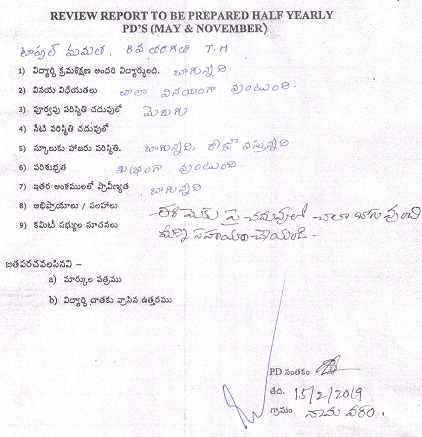 REVIEW REPORT TO BE PREPARED HALF YEARLY
PD'S (MAY & NOVEMBER)
మమత. T.M
1) విద్యార్థి క్రమశిక్షణ అందరి విద్యార్థులది. బాగున్నది
2) వినయ విధేయతలు చాలా వినయంగా వుంటుంది.
3) పూర్వపు పరిస్థితి చదువులో మెరుగు
4) నేటి పరిస్థితి చదువులో
5) స్కూలుకు హాజరు పరిస్థితి. బాగున్నది, రోజూ వస్తున్నది.
6) పరిశుభ్రత శుభ్రంగా వుంటుంది
7) ఇతర అంశములలో ప్రావీణ్యత బాగున్నది
8) అభిప్రాయాలు / సలహాలు చదువులో చాలా బాగ వుంది
9) కమిటీ సభ్యుల సూచనలు సహాయం చేయండి.
జతపరచవలసినవి –
a) మార్కుల పత్రము
b) విద్యార్థి దాతకు వ్రాసిన ఉత్తరము
PD సంతకం
తేది. 15/2/2019
గ్రామం వరం.